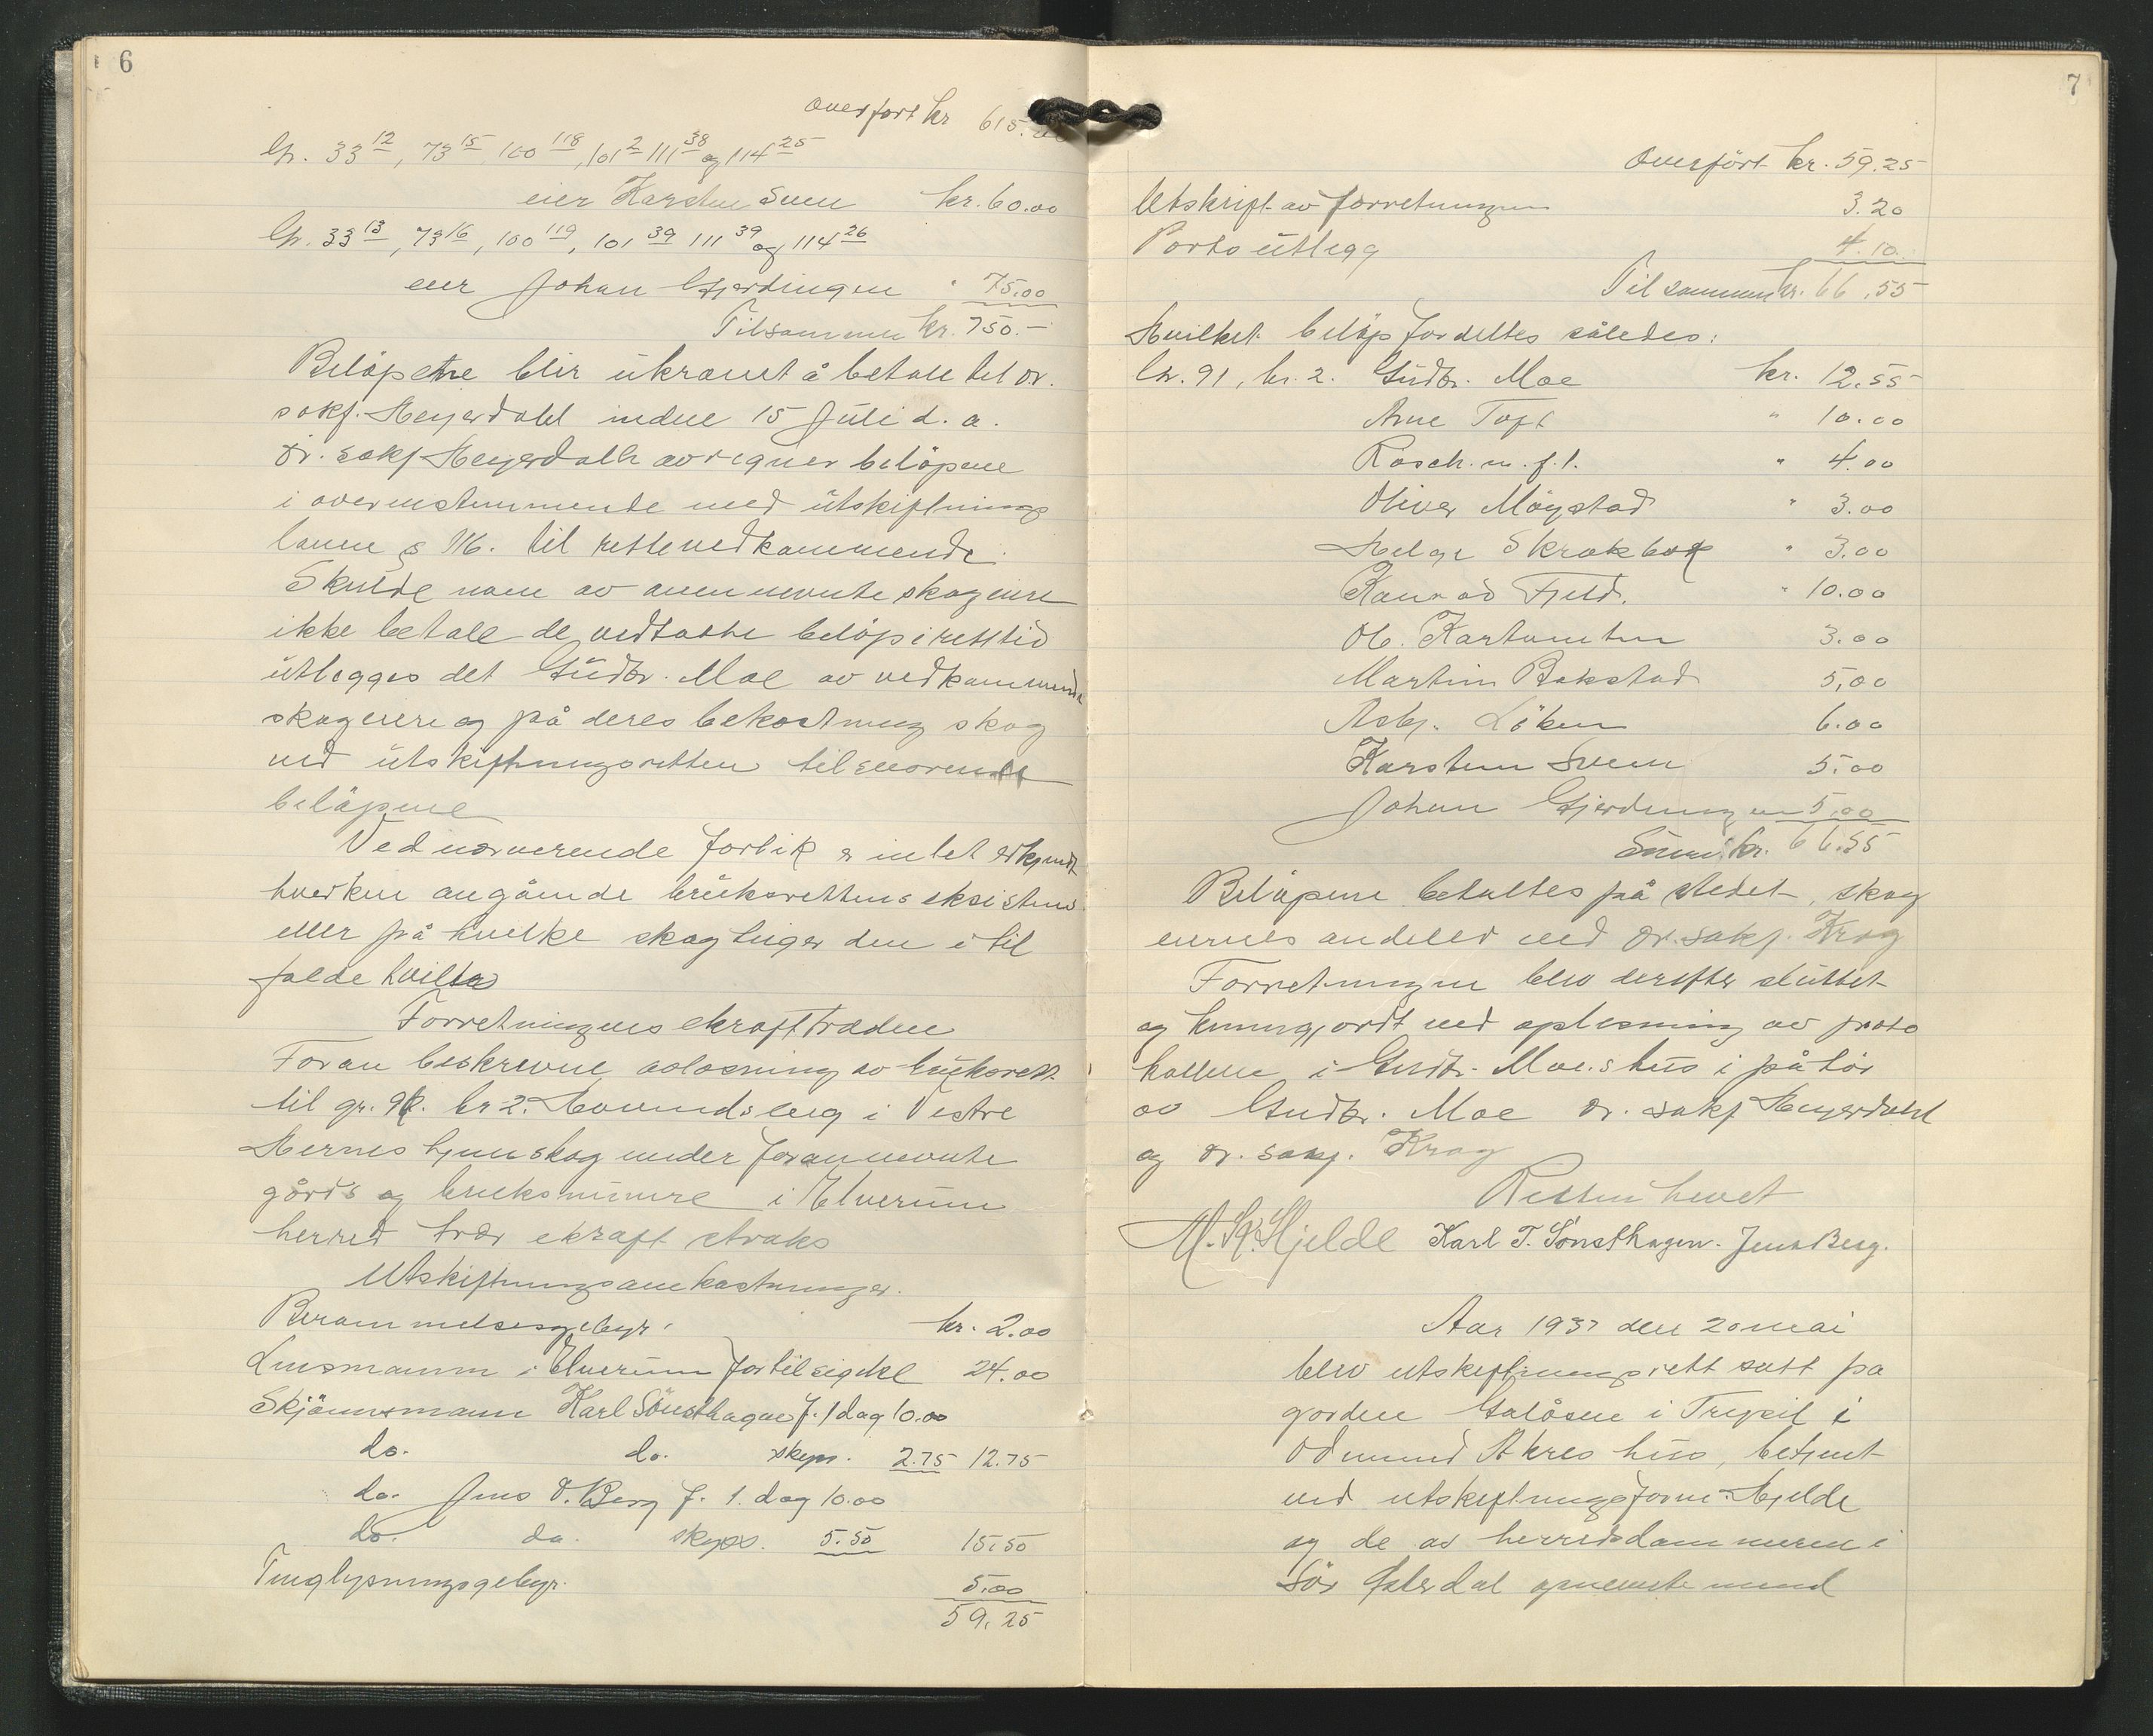 6
overført kr 615.00
Gr. 33 12, 73 15 100 118, 101 2 111 38 og 114 25
eier Karsten Sveen kr. 60.00
Gr. 33 13, 73 16, 100 119, 101 39 111 39 og 114 26
eier Johan Gjerdingen " 75.00
Tilsammen kr. 750.-
Beløpene blir å betale til or.
sakf. Heyerdahl inden 15 Juli d. a.
Or. sakf Heyerdalh avregner beløpene
i overenstemmende med utskiftnings
loven § 116. til rettevedkommende.
Skulde noen av nevnte skogeiere
ikke betale de vedtatte beløp i rett tid
utlegges det Gudbr. Moe av vedkommende
skogeiere og på deres bekostning skog
ved utskiftningsretten tilsvarende
beløpene
Ved nærværende forlik er intet erkjendt
hverken angående bruksrettens eksistens
eller på hvilke skogteiger den i til
fælde hviler
Forretningens ekrafttræden
Foran beskrevne avløsning av bruksrett
til gr. 91. br 2. i Vestre
Hernes hjemskog under forannevnte
gårds og bruksnumre i Elverum
herred trær ekraft straks
Utskiftningsomkostninger.
Berammelsesgebyr. kr. 2.00
Lensmannen i Elverum for tilsigelse 24.00
Skjønnsmann Karl Sönsthagen f. 1 dag 10.00
do. do. skyss. 2.75 12.75
do. Jens O. Berg f. 1. dag 10.00
do. do. skyss. 5.50 15.50
Tinglysningsgebyr. 5.00
59.25
7
Overført kr. 59.25
Utskrift av forretningen 3.20
Porto utlegg 4.10
Tilsammen kr. 66.55
Hvilket beløp fordeltes således:
Gr. 91, br. 2. Gudbr. Moe kr. 12.55
Arne Toft " 10.00
Rasch. m. fl. " 4.00
Oliver Møystad " 3.00
Helge Skrækbøk " 3.00
Konrad Fjeld. " 10.00
Ol. Kartomten 3.00
Martin Bakstad 5,00
Asbj. Löken 6.00
Karsten Sveen 5.00
Johan Gjerdingen 5.00
Sum kr. 66.55
Beløpene betaltes på stedet, skog
eiernes andeler ved or. sakf. Krog
Forretningen blev derefter sluttet
og kunngjordt ved oplesning av proto
kollen i Gudbr. Moe.s hus i påhør
av Gudbr. Moe or. sakf Heyerdahl
og or. sakf. Krog
Retten hevet
M. K. Hjelde Karl T. Sönsthagen. Jens Berg.
Aar 1937 den 20 mai
blev utskiftningsrett satt på
gorden Galåsen i Trysil i
Odmund Akres hus, betjent
ved utskiftningsform. Hjelde
og de av herredsdommeren i
Sör Østerdal opnevnte menn